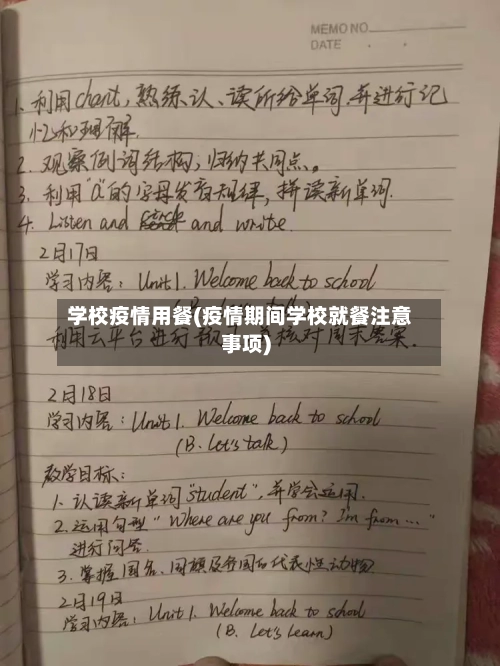 MEMO NO.
DATE . .
1、利用chant,熟练认、读所给单词.并进行记
忆和理解.
2. 观察例词结构,归纳共同点。
3. 利用"a"的字母发音规律,拼读新单词.
4. Listen and and write.
2月17日
学习内容: Unit 1. Welcome back to school
学校疫情用餐(疫情期间学校就餐注意
事项)
利用云平台进行 核对周末答案.
2月18日
学习内容: Unit 1. Welcome back to school
(B. Let's talk)
教学目标:
1. 认读新单词"student",并学会运用.
2. 运用句型"Where are you from? I'm from ..."
进行问答.
3. 掌握国名、国旗及各国的代表性动物
2月19日
学习内容: Unit 1. Welcome back to school
(B. Let's learn)